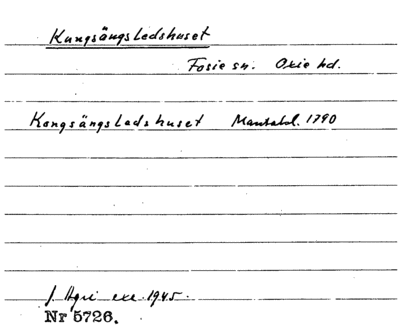 Kungsängsledshuset
Fosie sn. Oxie hd.
Kongsängsledshuset Mantalsl. 1790
J. Agri exc. 1945.
Nr 5726.